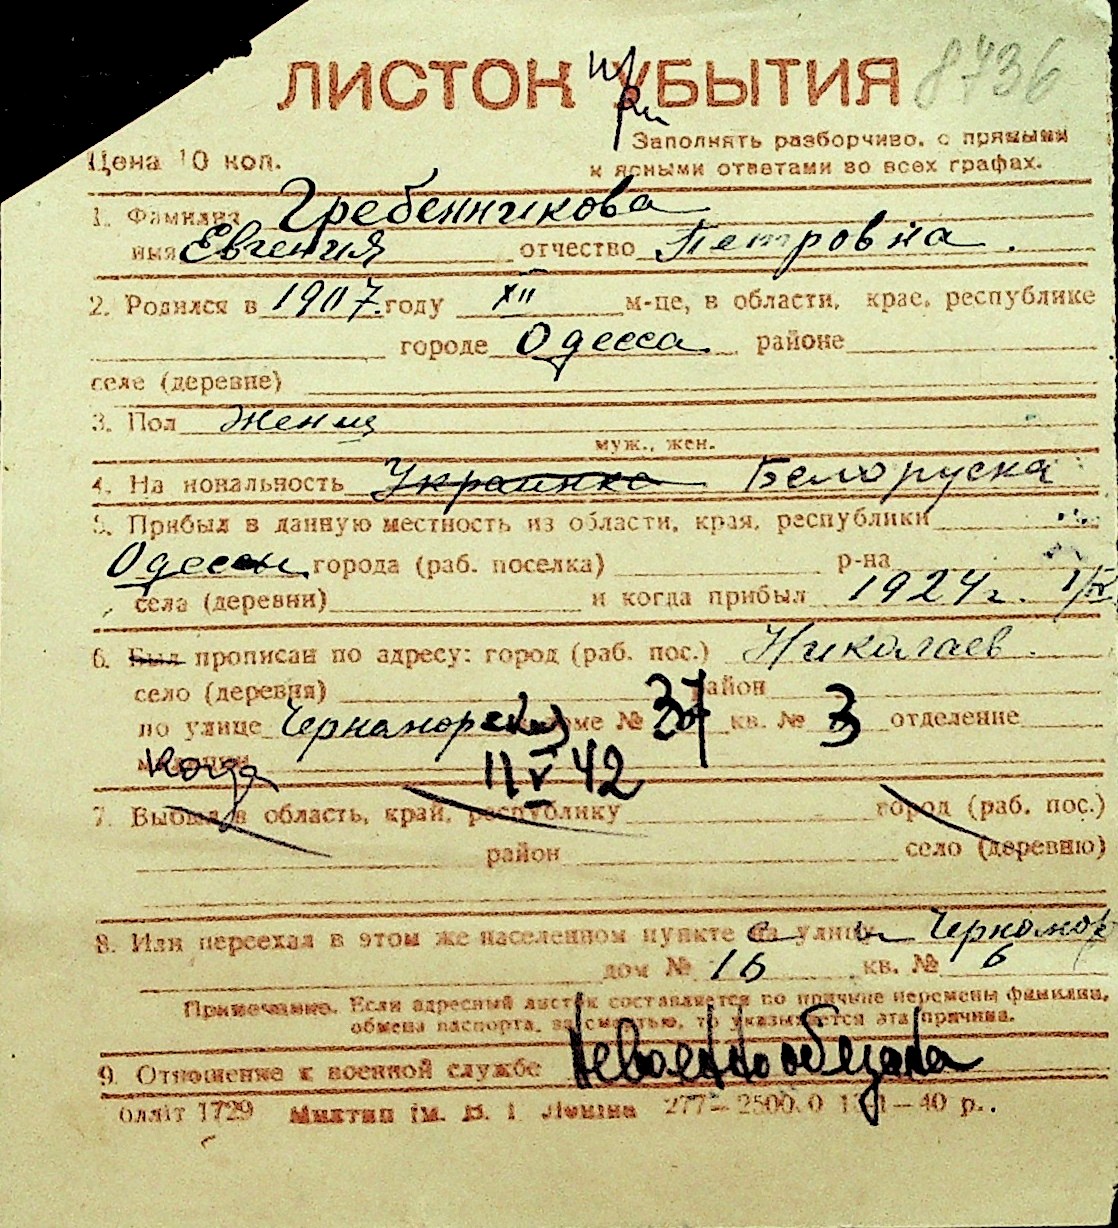 ЛИСТОК УБЫТИЯ 8736
при
Цена 10 коп.
Заполнять разборчиво, с прямыми
и ясными ответами во всех графах.
1. Фамилия Гребенникова
имя Евгения отчество Петровна.
2. Родился в 1907. году XII м-це, в области, крае, республике
городе Одесса районе
селе (деревне)
3. Пол женщ
муж., жен.
4. На нональность Украинка Белоруска
5. Прибыл в данную местность из области, края, республики
Одессы города (раб. поселка) р-на
села (деревни) и когда прибыл 1924 г.
6. Был прописан по адресу: город (раб. пос.) Николаев.
село (деревня) район
по улице Черноморской доме № 37 кв. № 3 отделение
милиции Когда 11 V 42
7. Выбыл в область, край, республику город (раб. пос.)
район село (деревню)
8. Или переехал в этом же населенном пункте с улицы Черномор
дом № 16 кв. № 6
Примечание. Если адресный листок составляется по причине перемены фамилии,
обмена паспорта, за смертью, то указывается эта причина.
9. Отношение к военной службе Невоеннообязана
олліт 1729 Миктип ім. В. І. Леніна 277—2500.0 —40 р..